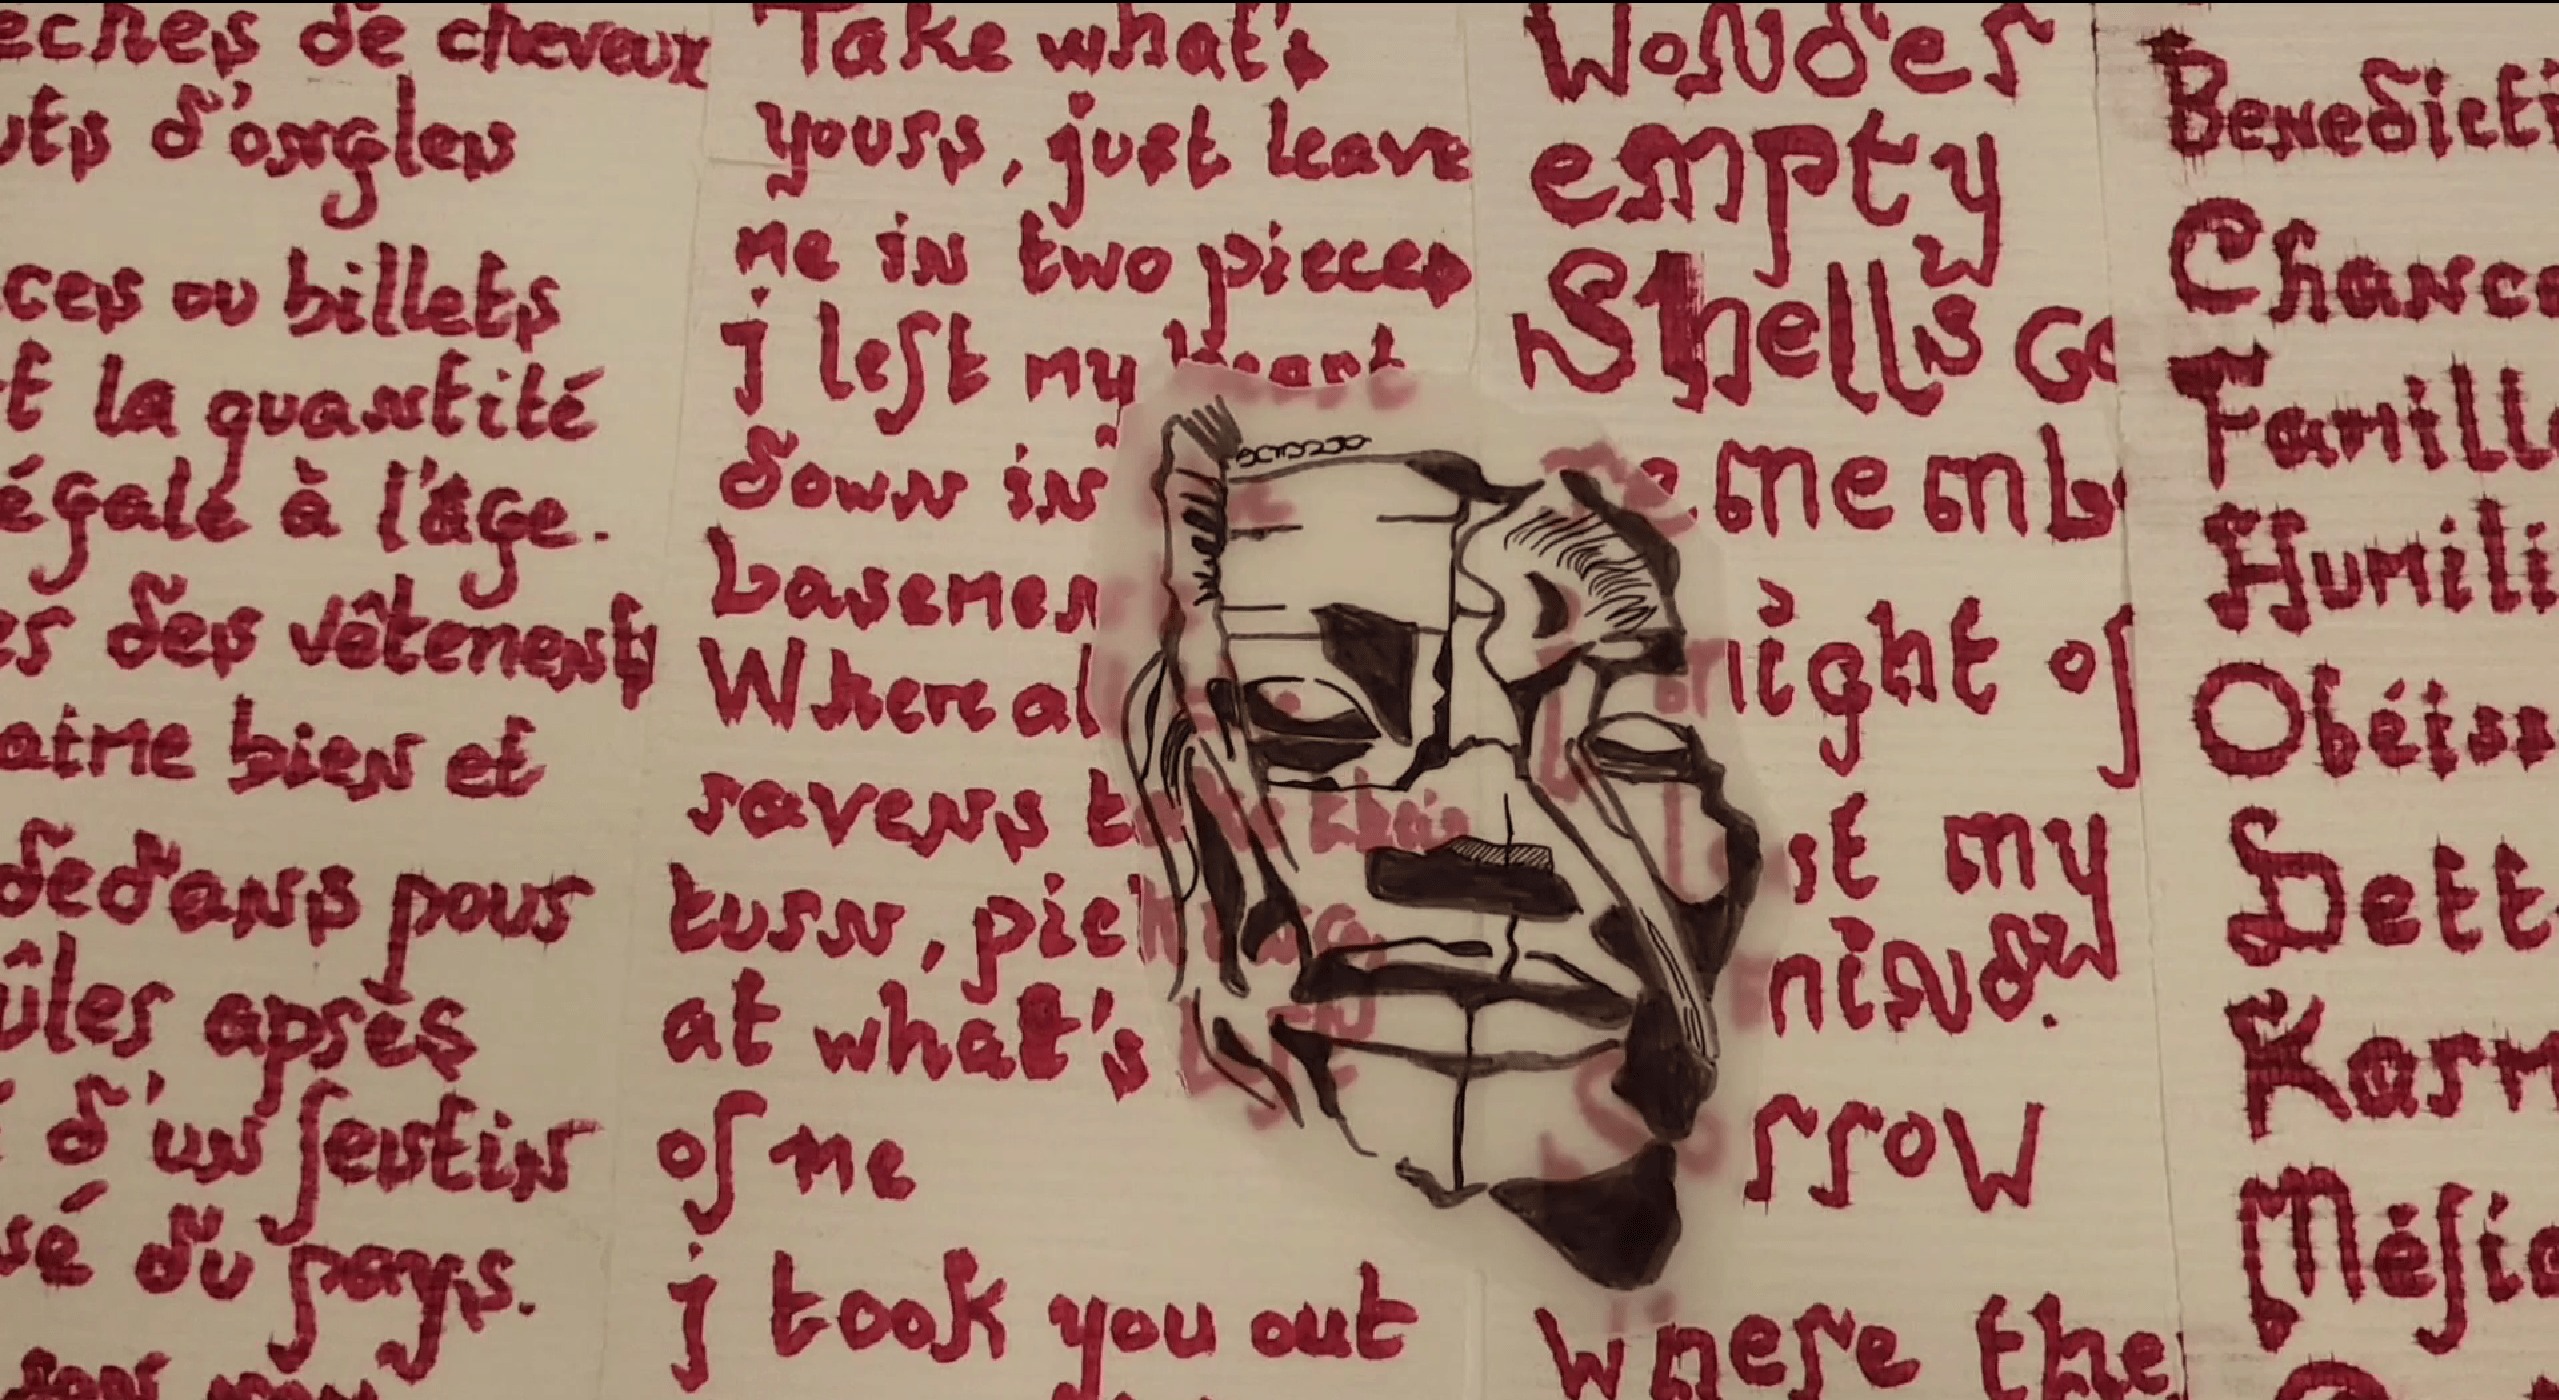 èches de cheveux
uts d'ongles
ces ou billets
t la quantité
égale à l'âge.
es des vêtements
aime bien et
dedans pour
ûles après
d'un festin
sé du pays.
Take what's
yours, just leave
me in two pieces
j left my heart
down in
basemen
Where al
ravens t their
turn, picking
at what's left
of me
j took you out
Wonder
empty
Shells Go
rememb
night of
lost my
mind.
Morr
where the
Benedicti
Chance
Famille
Humili
Obéiss
Dett
Karm
Méfia